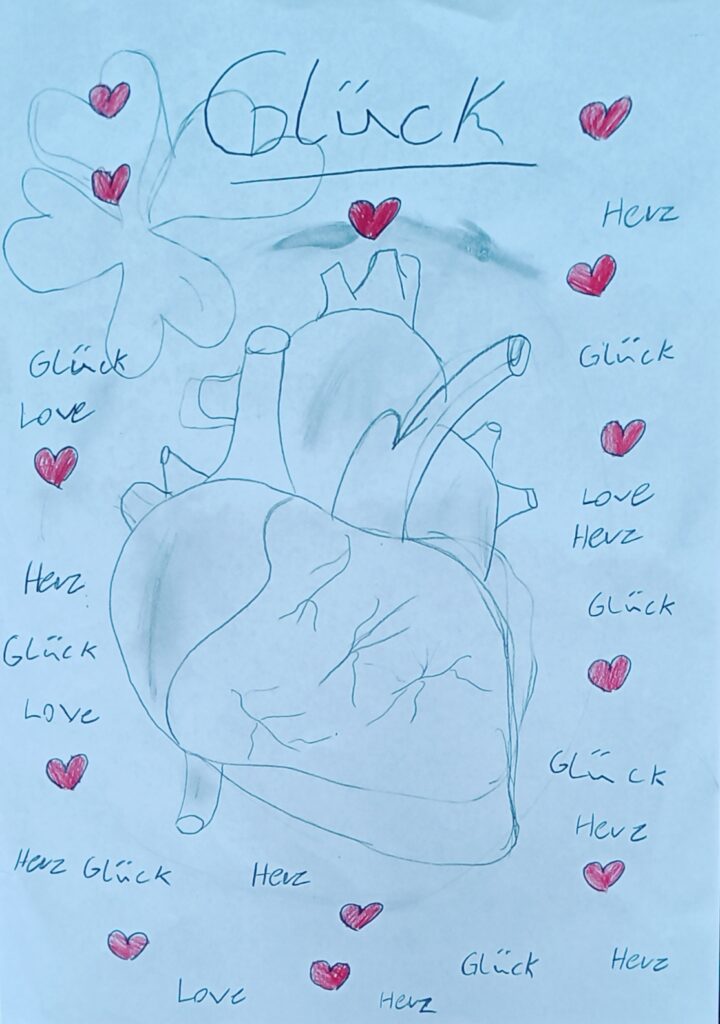 Glück
Herz
Glück
Glück
Love
Love
Herz
Herz
Glück
Glück
Love
Glück
Herz
Herz Glück
Herz
Glück
Herz
Love
Herz